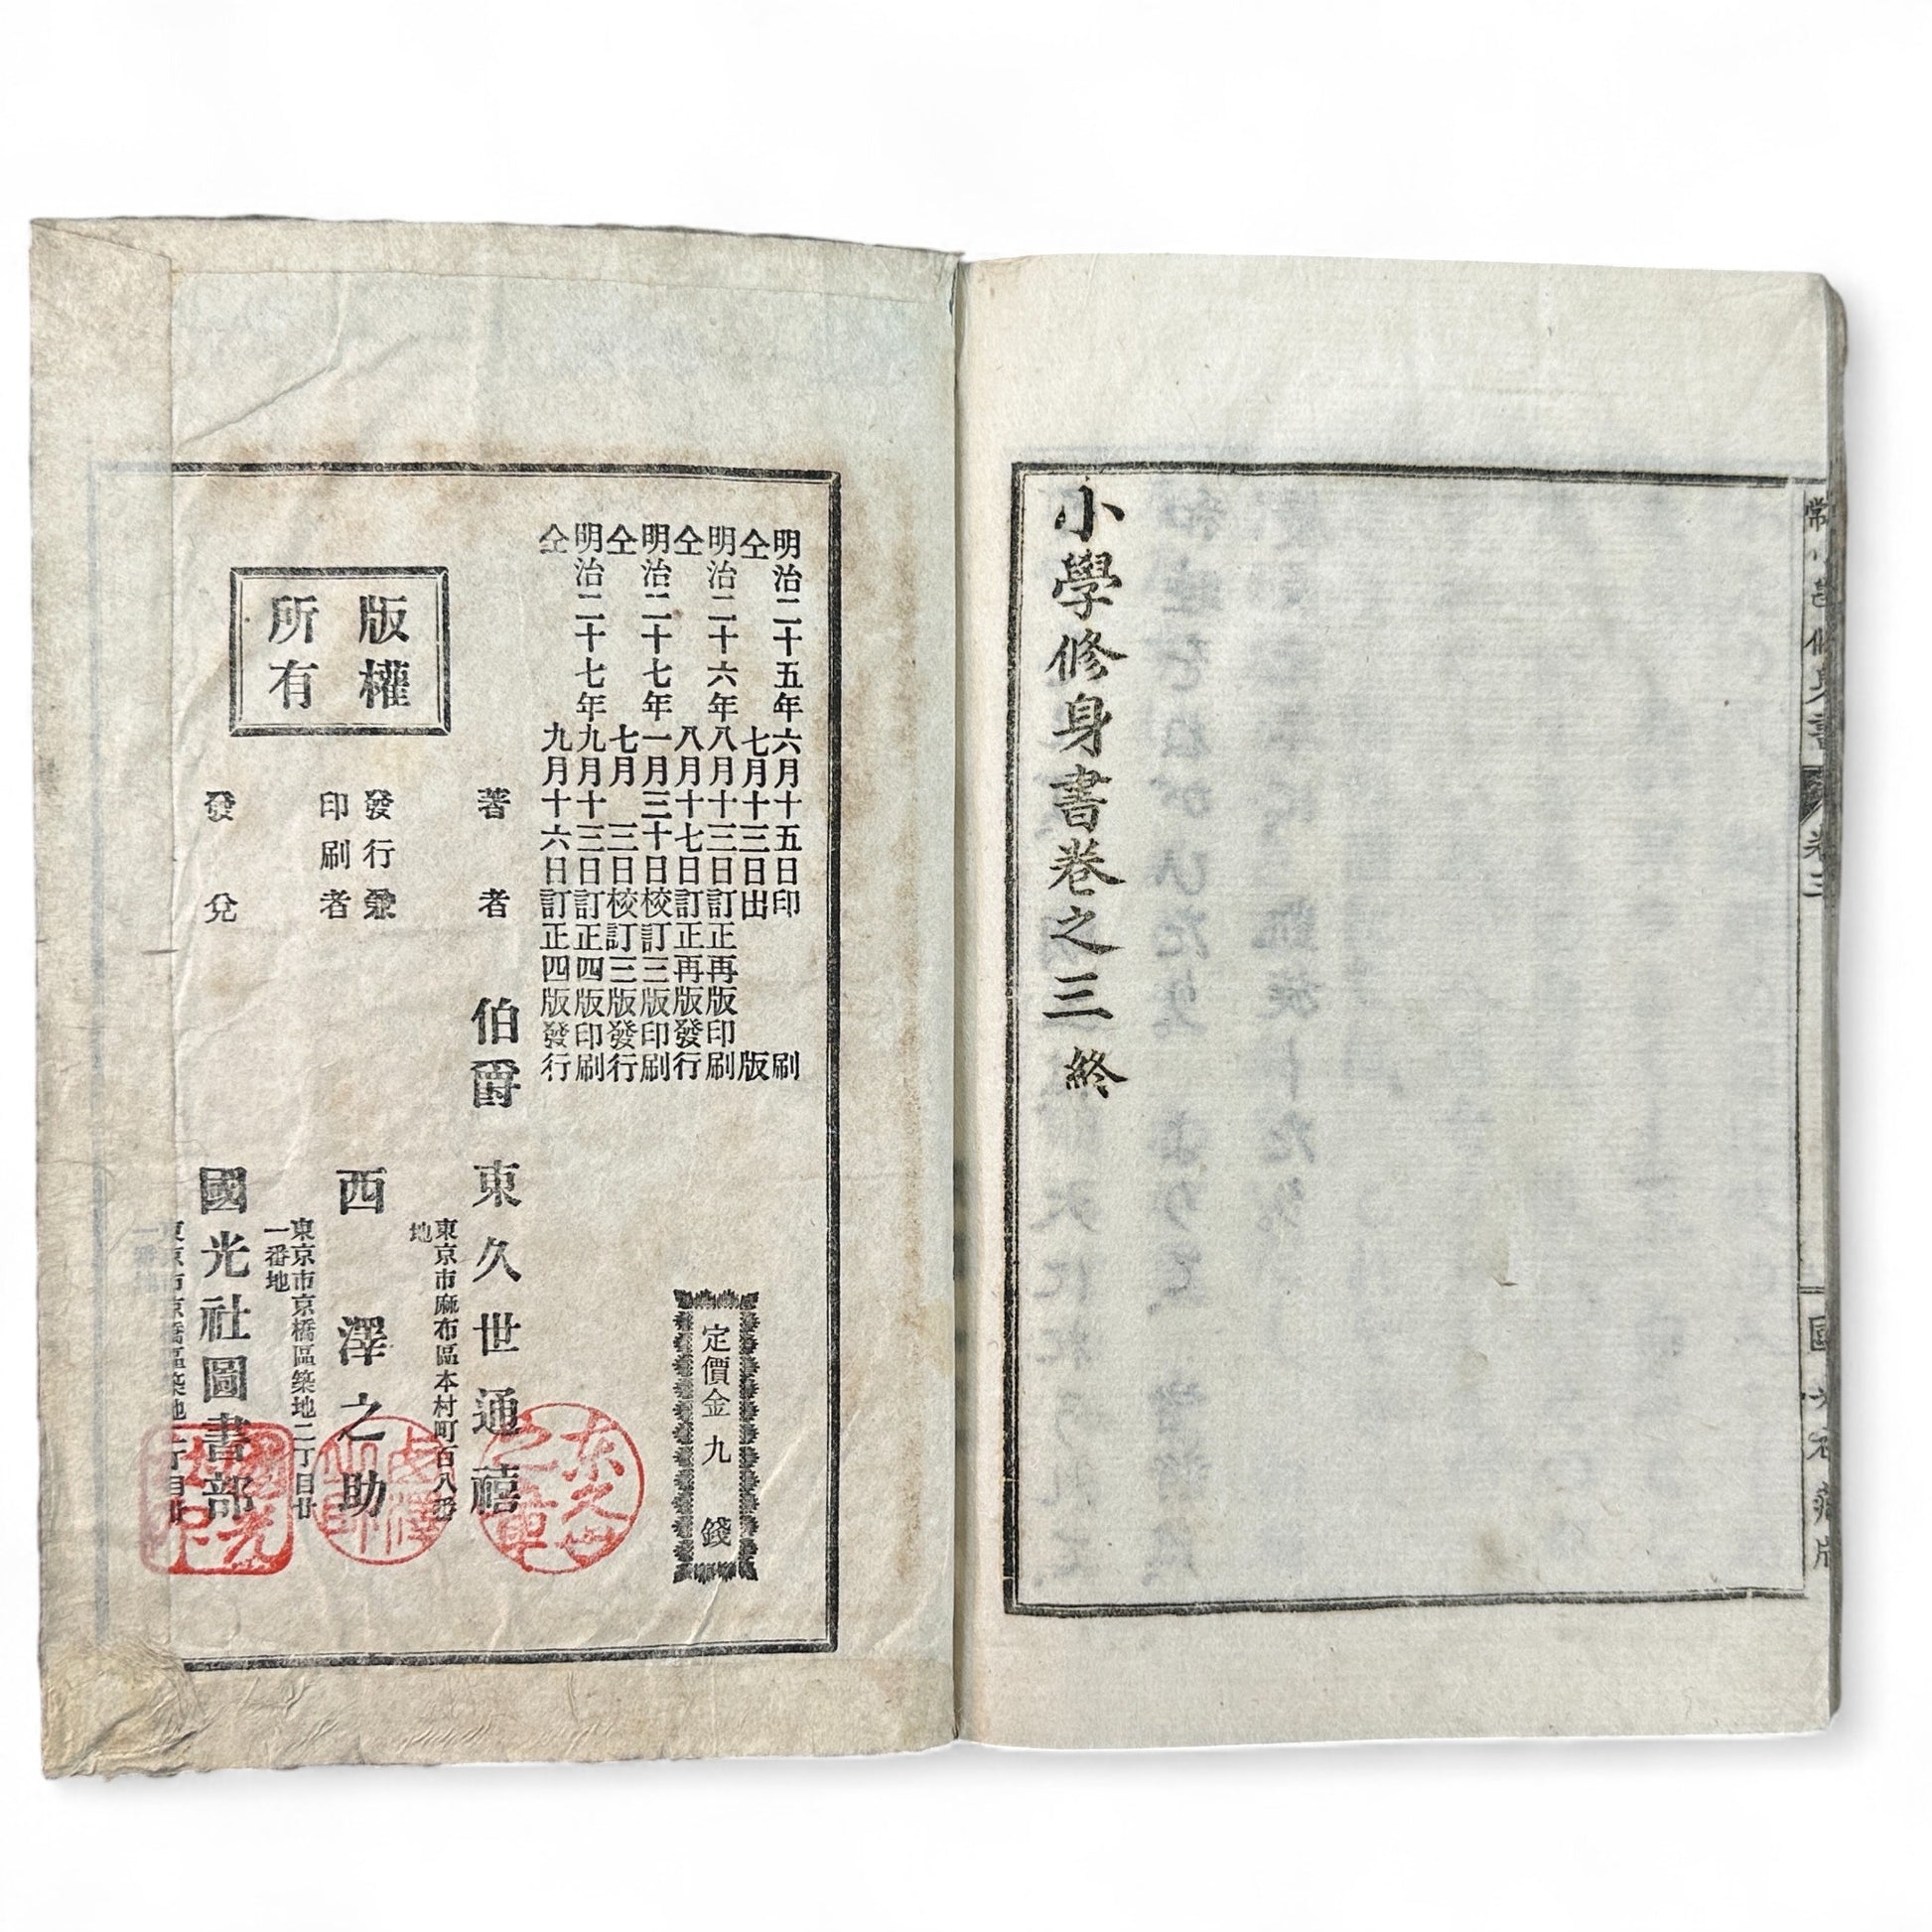 小學修身書卷之三 終
明治二十五年六月十五日印刷
仝七月十三日出版
明治二十六年八月十三日訂正再版印刷
仝八月十七日訂正再版發行
明治二十七年一月三十日校訂三版印刷
仝七月三日校訂三版發行
明治二十七年九月十三日訂正四版印刷
仝九月十六日訂正四版發行
定價金九錢
著者 伯爵 東久世通禧
東京市麻布區本村町百八番
地
發行兼
印刷者 西澤之助
東京市京橋區築地二丁目廿
一番地
發兌 國光社圖書部
東京市京橋區築地二丁目廿
一番地
版權
所有